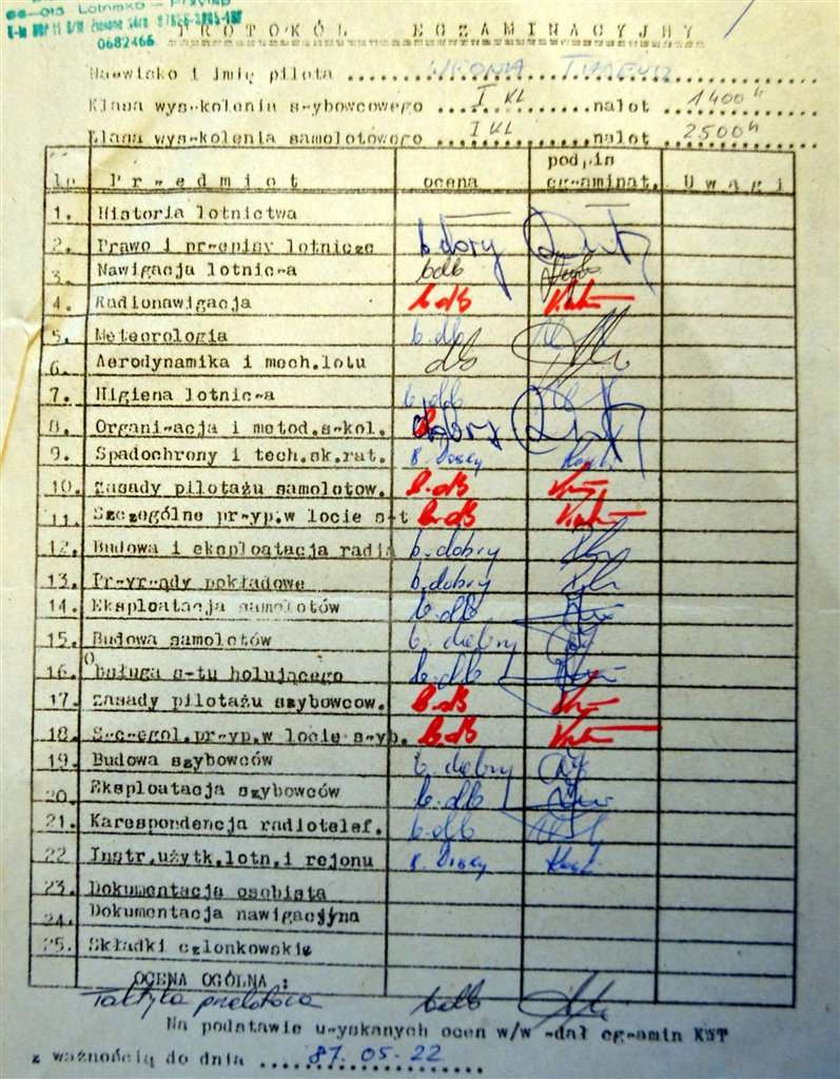 66-015 Lotnisko - Przylep
0682466
PROTOKÓŁ EGZAMINACYJNY
Nazwisko i imię pilota ..........
Klasa wyszkolenia szybowcowego .... I KL ....... nalot ... 1400 h
Klasa wyszkolenia samolotowego .... I KL ....... nalot ... 2500 h
Lp Przedmiot ocena podpis egzaminat. Uwagi
1. Historia lotnictwa
2. Prawo i przepisy lotnicze b. dobry
3. Nawigacja lotnicza bdb
4. Radionawigacja b.db
5. Meteorologia b.db
6. Aerodynamika i mech.lotu db
7. Higiena lotnicza b.db
8. Organizacja i metod.szkol. dobry
9. Spadochrony i tech.sk.rat.
10. Zasady pilotażu samolotow. b.db
11. Szczególne przyp.w locie s-t b.db
12. Budowa i eksploatacja radia b.dobry
13. Przyrządy pokładowe b.dobry
14. Eksploatacja samolotów b.db
15. Budowa samolotów b. dobry
16. Obsługa s-tu holującego b.db
17. Zasady pilotażu szybowcow. b.db
18. Szczegól.przyp.w locie szyb. b.db
19. Budowa szybowców b. dobry
20. Eksploatacja szybowców b.db
21. Karespondencja radiotelef. b.db
22 Instr.użytk.lotn.i rejonu
23. Dokumentacja osobista
24. Dokumentacja nawigacyjna
25. Składki członkowskie
OCENA OGÓLNA :
Taktyka przelotowa bdb
Na podstawie uzyskanych ocen w/w zdał egzamin KWT
z ważnością do dnia ..... 87.05.22